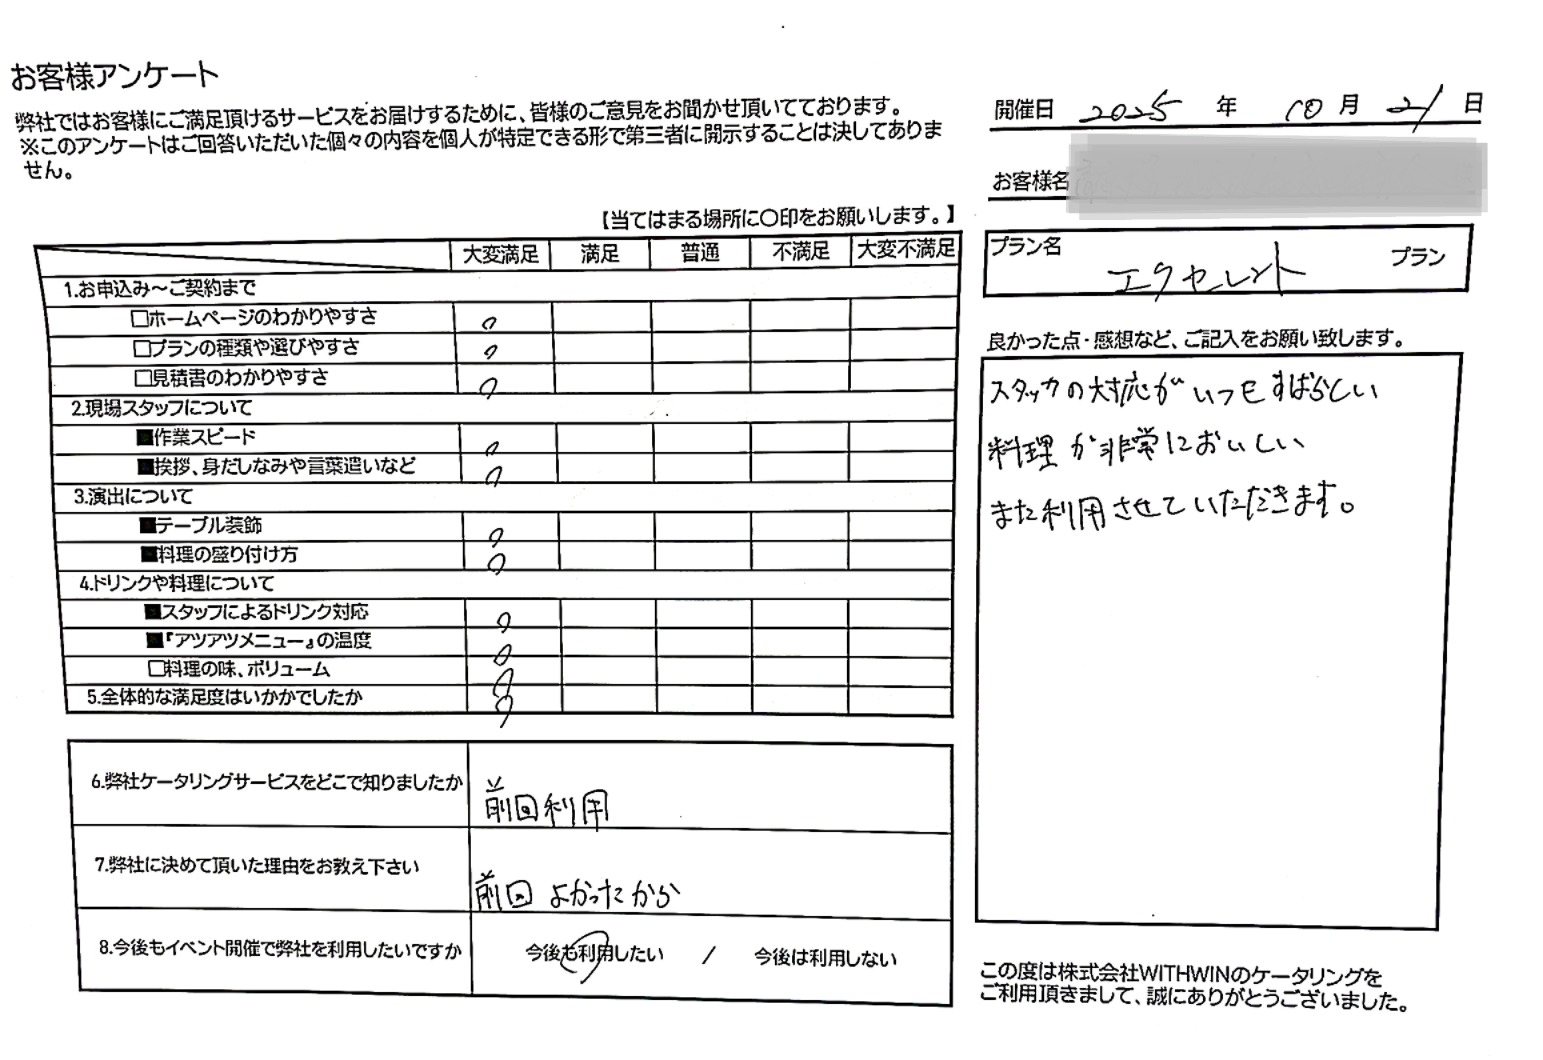 お客様アンケート
弊社ではお客様にご満足頂けるサービスをお届けするために、皆様のご意見をお聞かせ頂いてております。
※このアンケートはご回答いただいた個々の内容を個人が特定できる形で第三者に開示することは決してありま
せん。
【当てはまる場所に〇印をお願いします。】
大変満足 満足 普通 不満足 大変不満足
1.お申込み～ご契約まで
□ホームページのわかりやすさ ○
□プランの種類や選びやすさ ○
□見積書のわかりやすさ ○
2.現場スタッフについて
■作業スピード ○
■挨拶、身だしなみや言葉遣いなど ○
3.演出について
■テーブル装飾 ○
■料理の盛り付け方 ○
4.ドリンクや料理について
■スタッフによるドリンク対応 ○
■『アツアツメニュー』の温度 ○
□料理の味、ボリューム ○
5.全体的な満足度はいかかでしたか ○
6.弊社ケータリングサービスをどこで知りましたか 前回利用
7.弊社に決めて頂いた理由をお教え下さい 前回 よかったから
8.今後もイベント開催で弊社を利用したいですか 今後も利用したい / 今後は利用しない
開催日 2025 年 10 月 21 日
お客様名
プラン名 エクセレント プラン
良かった点・感想など、ご記入をお願い致します。
スタッフの対応がいつもすばらしい
料理が非常においしい
また利用させていただきます。
この度は株式会社WITHWINのケータリングを
ご利用頂きまして、誠にありがとうございました。